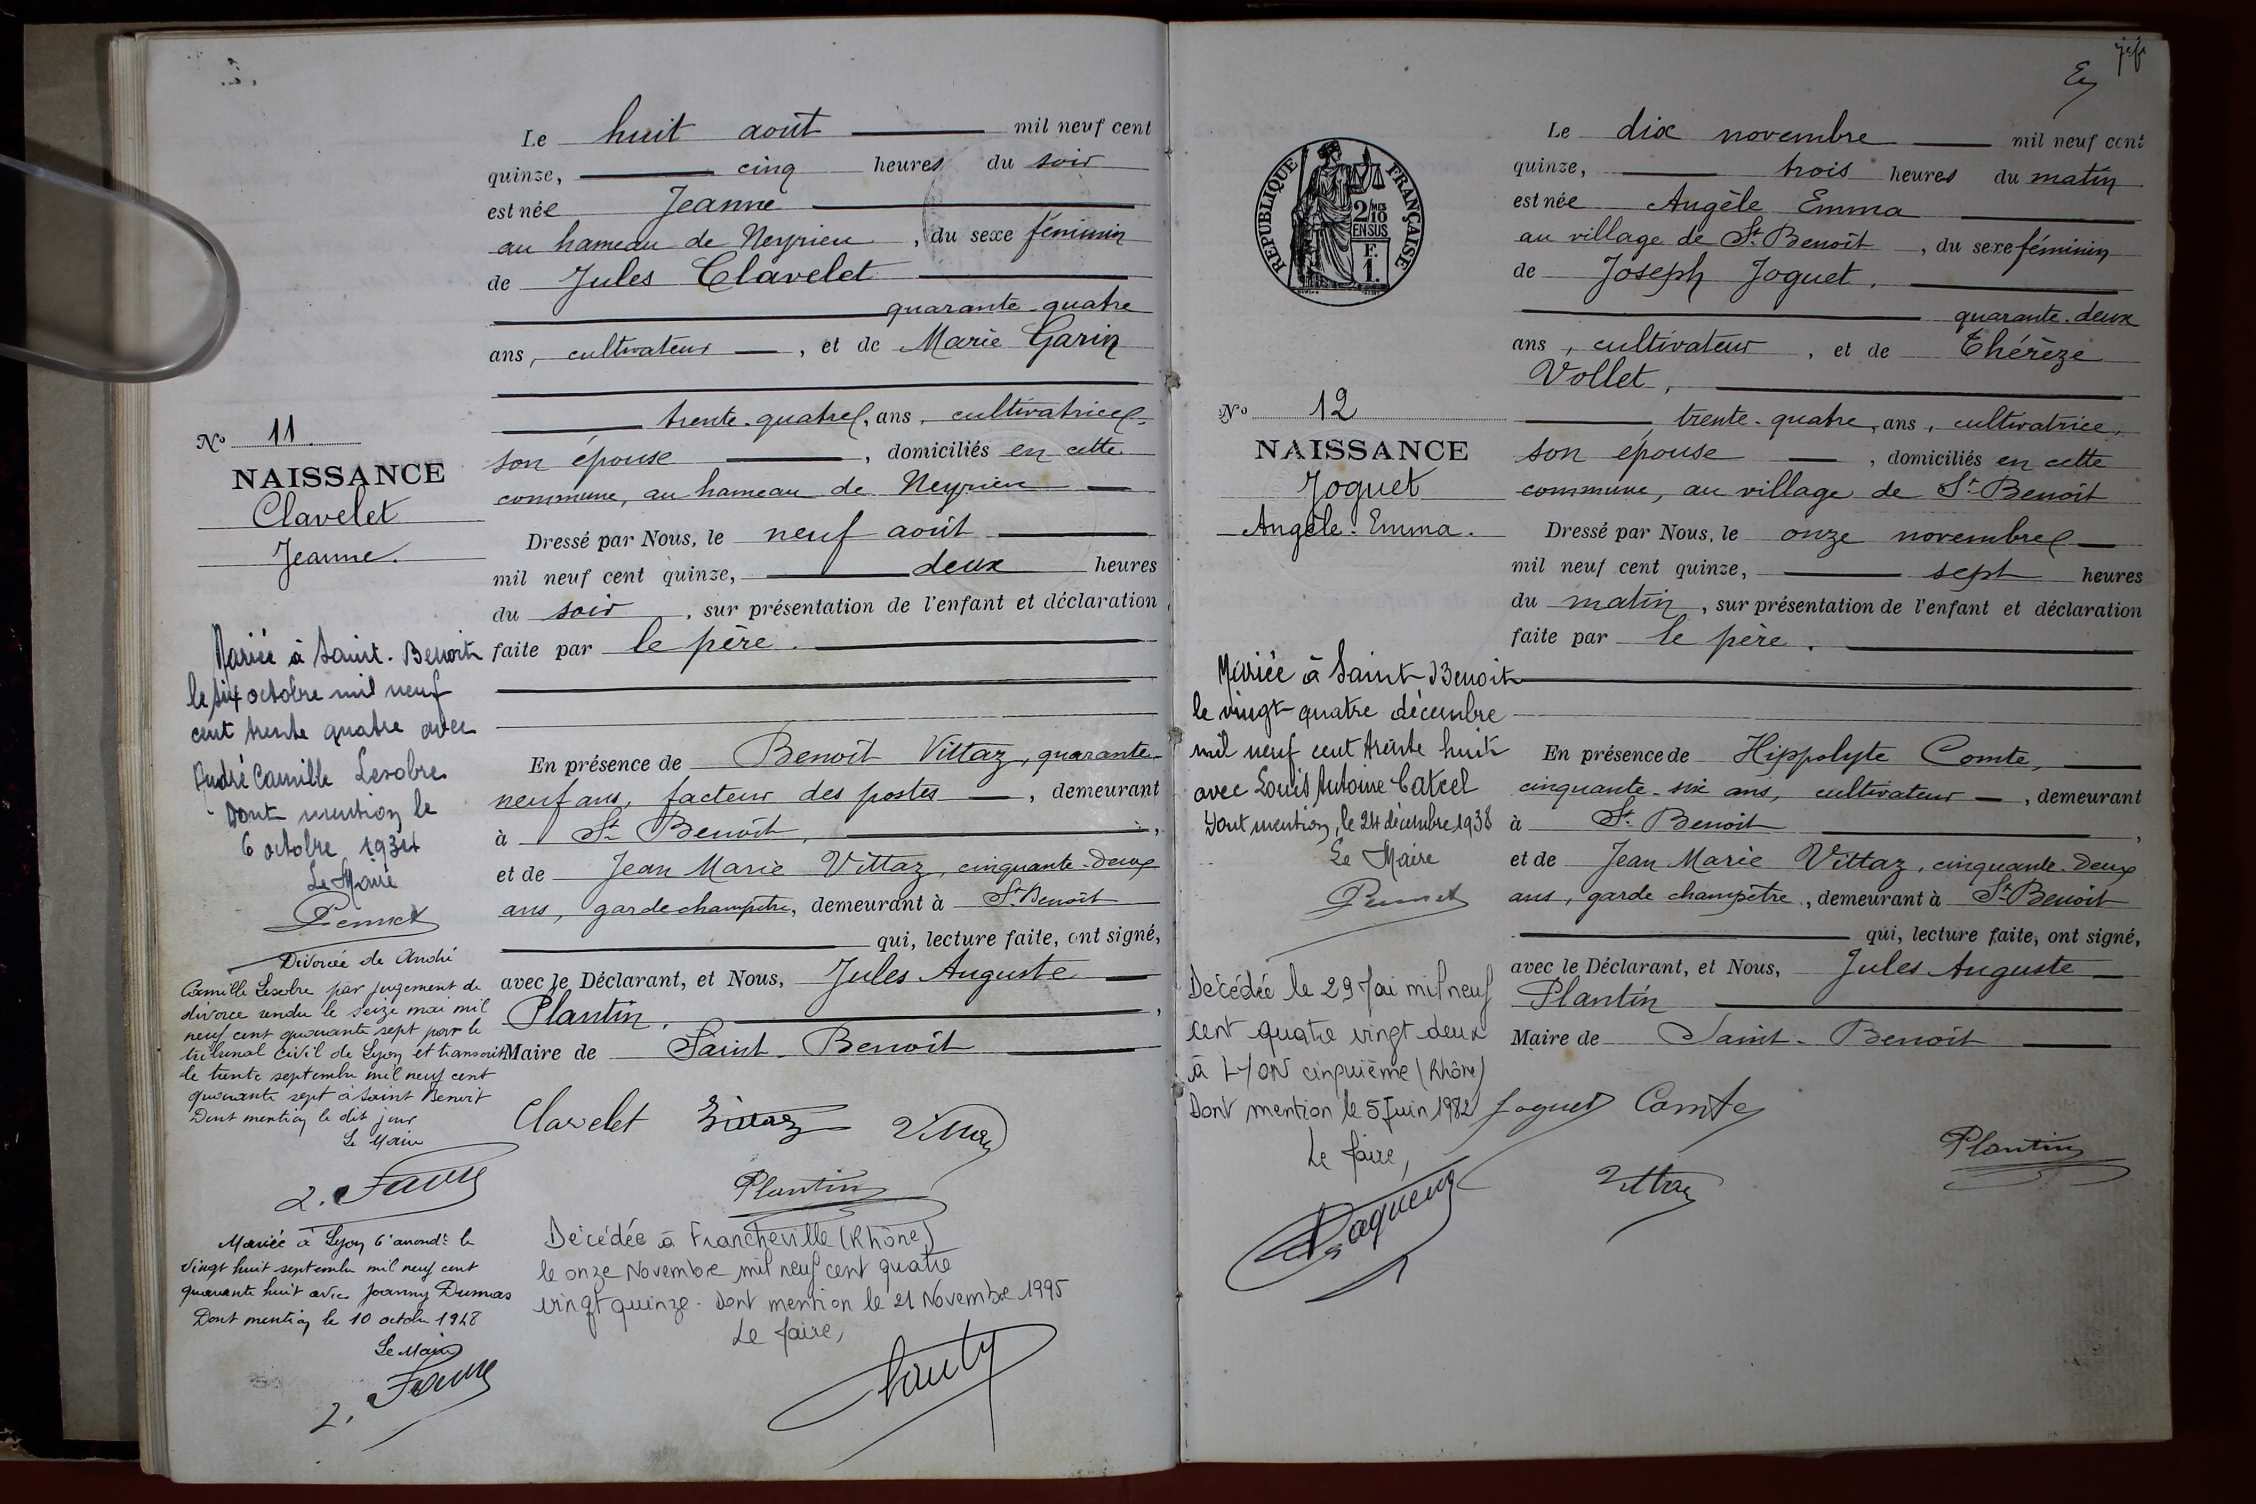 Le huit août mil neuf cent
quinze, cinq heures du soir
est née Jeanne
au hameau de Neyrieu, du sexe féminin
de Jules Clavelet
quarante-quatre
ans, cultivateur, et de Marie Garin
trente-quatre, ans, cultivatrice,
son épouse, domiciliés en cette
commune, au hameau de Neyrieu
Dressé par Nous, le neuf août
mil neuf cent quinze, deux heures
du soir, sur présentation de l'enfant et déclaration
faite par le père.
En présence de Benoît Vittaz, quarante-
neuf ans, facteur des postes, demeurant
à St Benoît,
et de Jean Marie Vittaz, cinquante-deux
ans, garde champêtre, demeurant à St Benoît
qui, lecture faite, ont signé,
avec le Déclarant, et Nous, Jules Auguste
Plantin,
Maire de Saint-Benoît
Clavelet Vittaz Vittaz
Plantin
Décédée à Francheville (Rhône)
le onze Novembre mil neuf cent quatre
vingt quinze. Dont mention le 21 Novembre 1995
Le Maire,
No 11.
NAISSANCE
Clavelet
Jeanne.
Mariée à Saint-Benoit
le six octobre mil neuf
cent trente quatre avec
André Camille Lesobre
Dont mention le
6 octobre 1934
Le Maire
Divorcée de André
Camille Lesobre par jugement de
divorce rendu le seize mai mil
neuf cent quarante sept par le
tribunal civil de Lyon et transcrit
le trente septembre mil neuf cent
quarante sept à Saint Benoit
Dont mention le dit jour
Le Maire
Mariée à Lyon 6e arrondt le
vingt huit septembre mil neuf cent
quarante huit avec Joanny Dumas
Dont mention le 10 octobre 1948
Le Maire
Le dix novembre mil neuf cent
quinze, trois heures du matin
est née Angèle Emma
au village de St Benoît, du sexe féminin
de Joseph Joguet,
quarante-deux
ans, cultivateur, et de Thérèze
Vollet,
trente-quatre, ans, cultivatrice,
son épouse, domiciliés en cette
commune, au village de St Benoît
Dressé par Nous, le onze novembre
mil neuf cent quinze, sept heures
du matin, sur présentation de l'enfant et déclaration
faite par le père.
En présence de Hippolyte Comte,
cinquante-six ans, cultivateur, demeurant
à St Benoît,
et de Jean Marie Vittaz, cinquante-deux
ans, garde champêtre, demeurant à St Benoît
qui, lecture faite, ont signé,
avec le Déclarant, et Nous, Jules Auguste
Plantin
Maire de Saint-Benoît
Joguet Comte
Vittaz
Plantin
RÉPUBLIQUE FRANÇAISE
2/10
EN SUS
F.
1.
No 12
NAISSANCE
Joguet
Angèle-Emma.
Mariée à Saint-Benoit
le vingt-quatre décembre
mil neuf cent trente huit
avec Louis Antoine
Dont mention, le 24 décembre 1938
Le Maire
Décédée le 29 Mai mil neuf
cent quatre vingt deux
à LYON cinquième (Rhône)
Dont mention le 5 Juin 1982
Le Maire,